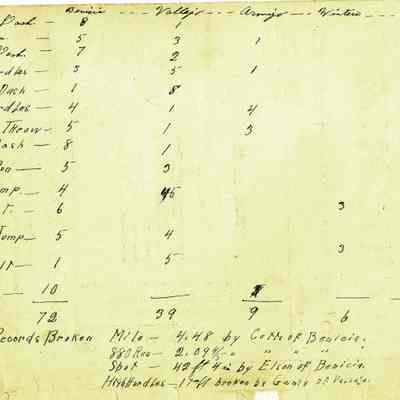 Benicia --- Vallejo --- Armijo --- Winters ---
Dash. — 8 1
— 5 3 1
Dash. — 7 2
rdles — 5 5 1
Dash — 1 8
rdles — 4 1 4
Throw — 5 1 3
ash — 8 1
Run — 5 3
mp. — 4 5
T. — 6 3
Jump — 5 4 3
lt — 1 5
— 10
72 39 9 6
Records Broken Mile — 4.48 by Cotts of Benicia.
880 Run — 2.09 4/5 " " "
Shot — 42 ft 4 in by Elson of Benicia.
High Hurdles — 17 broken by of Vallejo.